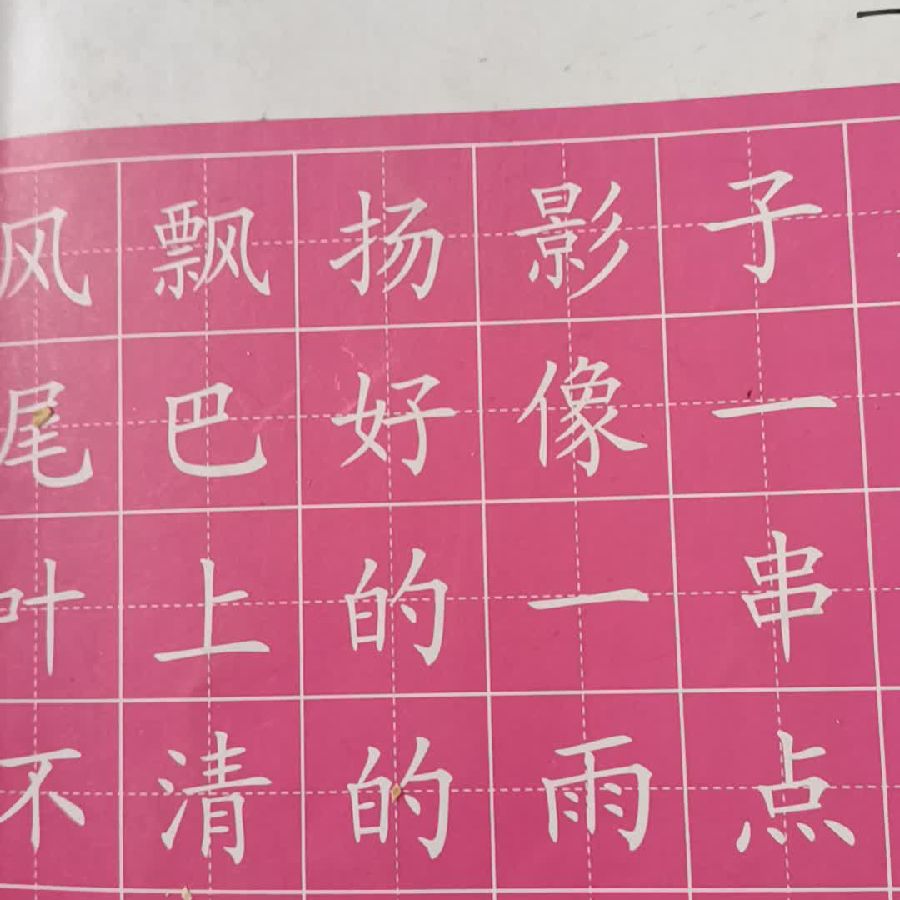 风飘扬影子
尾巴好像一
叶上的一串
不清的雨点